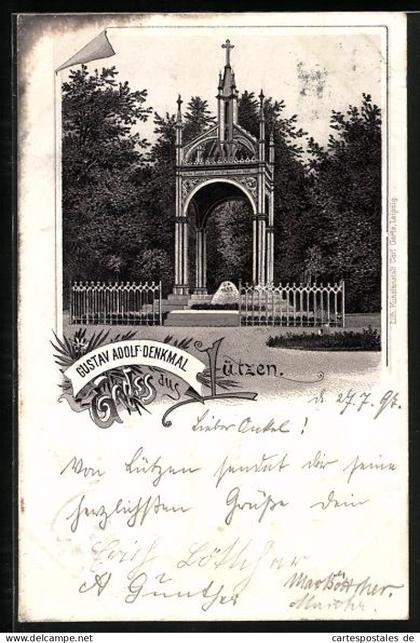 Lith. Kunstanstalt Carl Garte, Leipzig.
GUSTAV ADOLF-DENKMAL
Gruss aus Lützen.
d. 27.7.97.
Lieber Onkel!
Von Lützen sendet dir seine
herzlichsten Grüße dein
Erich Böttcher
A Günther
Max Böttcher.
www.delcampe.net